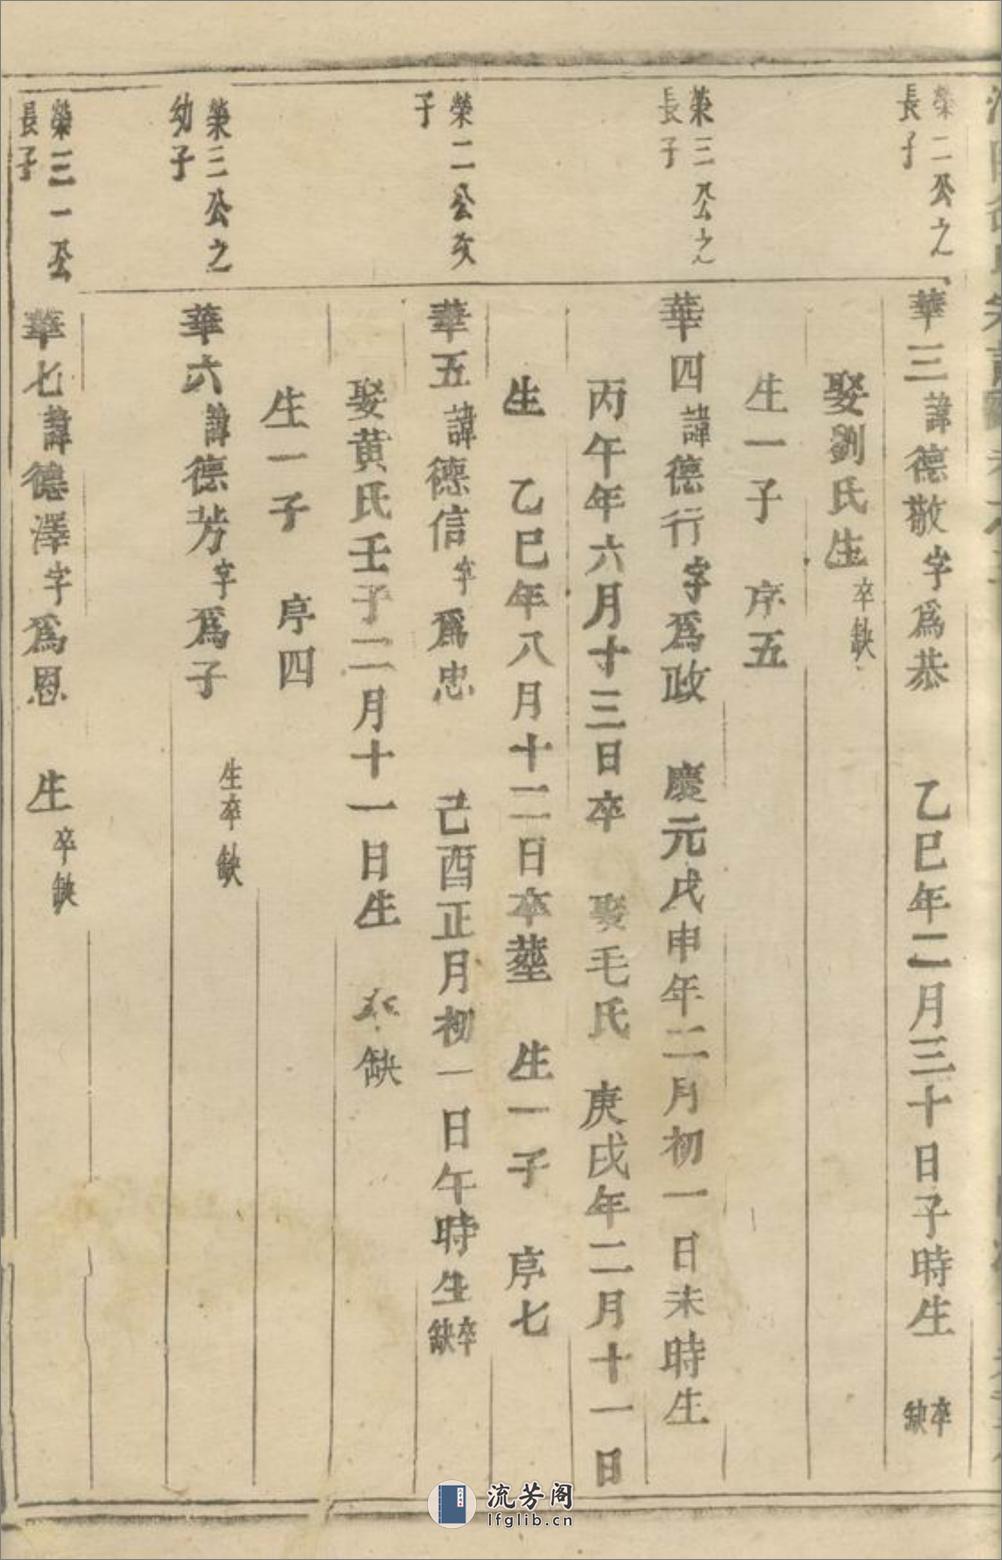 榮二公之長子
華三諱德敬字爲恭 乙巳年二月三十日子時生 卒缺
娶劉氏生卒缺
生一子 序五
榮三公之長子
華四諱德行字爲政 慶元戊申年二月初一日未時生
丙午年六月十三日卒 娶毛氏 庚戌年二月十一日
生 乙巳年八月十二日卒葬 生一子 序七
榮二公次子
華五諱德信字爲忠 己酉正月初一日午時生卒缺
娶黄氏壬子二月十一日生 缺
生一子 序四
榮三公之幼子
華六諱德芳字爲子 生卒缺
榮三一公長子
華七諱德澤字爲恩 生卒缺
流芳阁
lfglib.cn